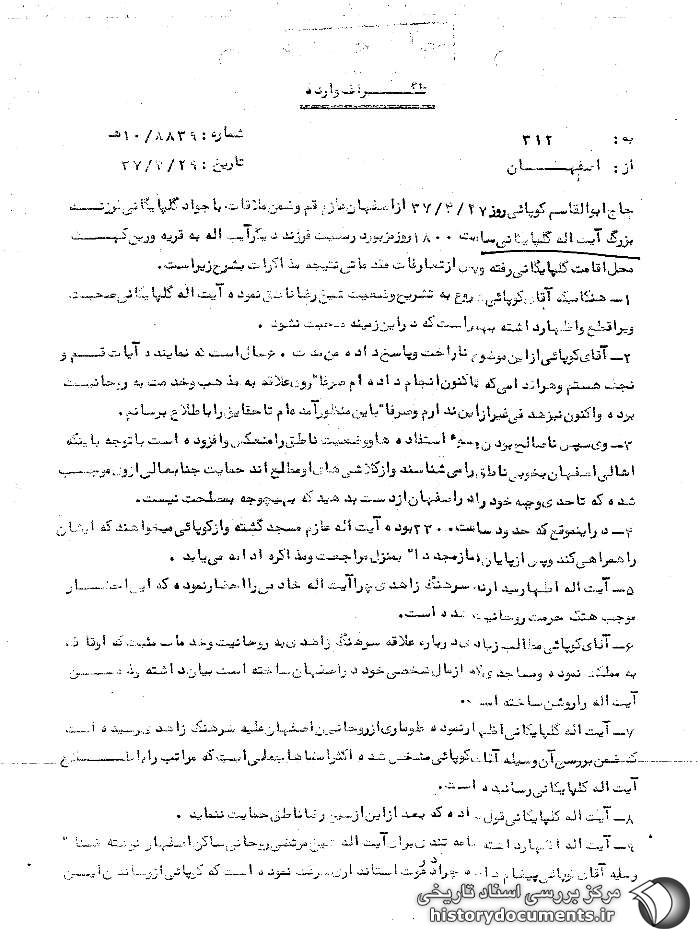 تلگـــراف وارده
به : ۳۱۲
شماره : ۱۰/۸۸۳۹ هـ
از : اصفهـــان
تاریخ : ۳۷/۴/۲۹
حاج ابوالقاسم کوپائی روز ۳۷/۴/۲۷ از اصفهان عازم قم و ضمن ملاقات با جواد گلپایگانی فرزنـــد
بزرگ آیت اله گلپایگانی ساعت ۱۸۰۰ روز مزبور د فرزند دیگر آیت اله به قریه کهـــت
محل اقامت گلپایگانی رفته و پس از تعارفات مقدماتی نتیجه مذاکرات بشرح زیر است.
۱ـ هنگامیکه آقای کوپائی شروع به تشریح وضعیت شیخ رضا ناطق نموده آیت اله گلپایگانی صحبـت
ویرا قطع و اظهار داشته بهتر است که در این زمینه صحبت نشود .
۲ـ آقای کوپائی از این موضوع ناراحت و پاسخ داده من مدت ۶۰ سال است که نماینده آیات قـــم و
نجف هستم و هر اقدامی که تاکنون انجام داده ام صرفا" روی علاقه به مذهب و خدمت به روحانیـــت
بوده و اکنون نیز هدفی غیر از این ندارم و صرفا" باین منظور آمده ام تا حقایق را باطلاع برسانم .
۳ـ وی سپس ناصالح بودن سوء استفاده ها و وضعیت ناطق را منعکس و افزوده است با توجه باینکه
اهالی اصفهان بخوبی ناطق را می شناسند و از کلاشی های او مطلع اند حمایت جنابعالی از وی موجـــب
شده که تا حدی وجهه خود را در اصفهان از دست بدهید که بهیچوجه بمصلحت نیست.
۴ـ در اینموقع که حدود ساعت ۲۲۰۰ بوده آیت اله عازم مسجد گشته و از کوپائی میخواهند که ایشان
را همراهی کند و پس از پایان نماز مجددا" بمنزل مراجعت و مذاکره ادامه می یابد .
۵ـ آیت اله اظهار میدارند سرهنگ زاهدی چرا آیت اله خادمی را احضار نموده که این احضـــار
موجب هتک حرمت روحانیت شده است.
۶ـ آقای کوپائی مطالب زیادی درباره علاقه سرهنگ زاهدی به روحانیت و خدمات مثبت که اوقاف
به مملکت نموده و مساجدی که از مال شخصی خود در اصفهان ساخته است بیان داشته و ذهـــن
آیت اله را روشن ساخته است.
۷ـ آیت اله گلپایگانی اظهار نموده طوماری از روحانیین اصفهان علیه سرهنگ زاهدی رسیده است
که ضمن بررسی آن وسیله آقای کوپائی مشخص شده اکثر امضاها جعلی است که مراتب را باطـــلاع
آیت اله گلپایگانی رسانیده است.
۸ـ آیت اله گلپایگانی قول داده که بعد از این از شیخ رضا ناطق حمایت ننماید .
۹ـ آیت اله اظهار داشته نامه تندی برای آیت اله شیخ مرتضی روحانی ساکن اصفهان نوشته ضمنا"
وسیله آقای کوپائی پیغام داده چرا در دعوت استانداری شرکت نموده است که کوپائی از رساندن ایـــن
مرکز بررسی اسناد تاریخی
historydocuments.ir